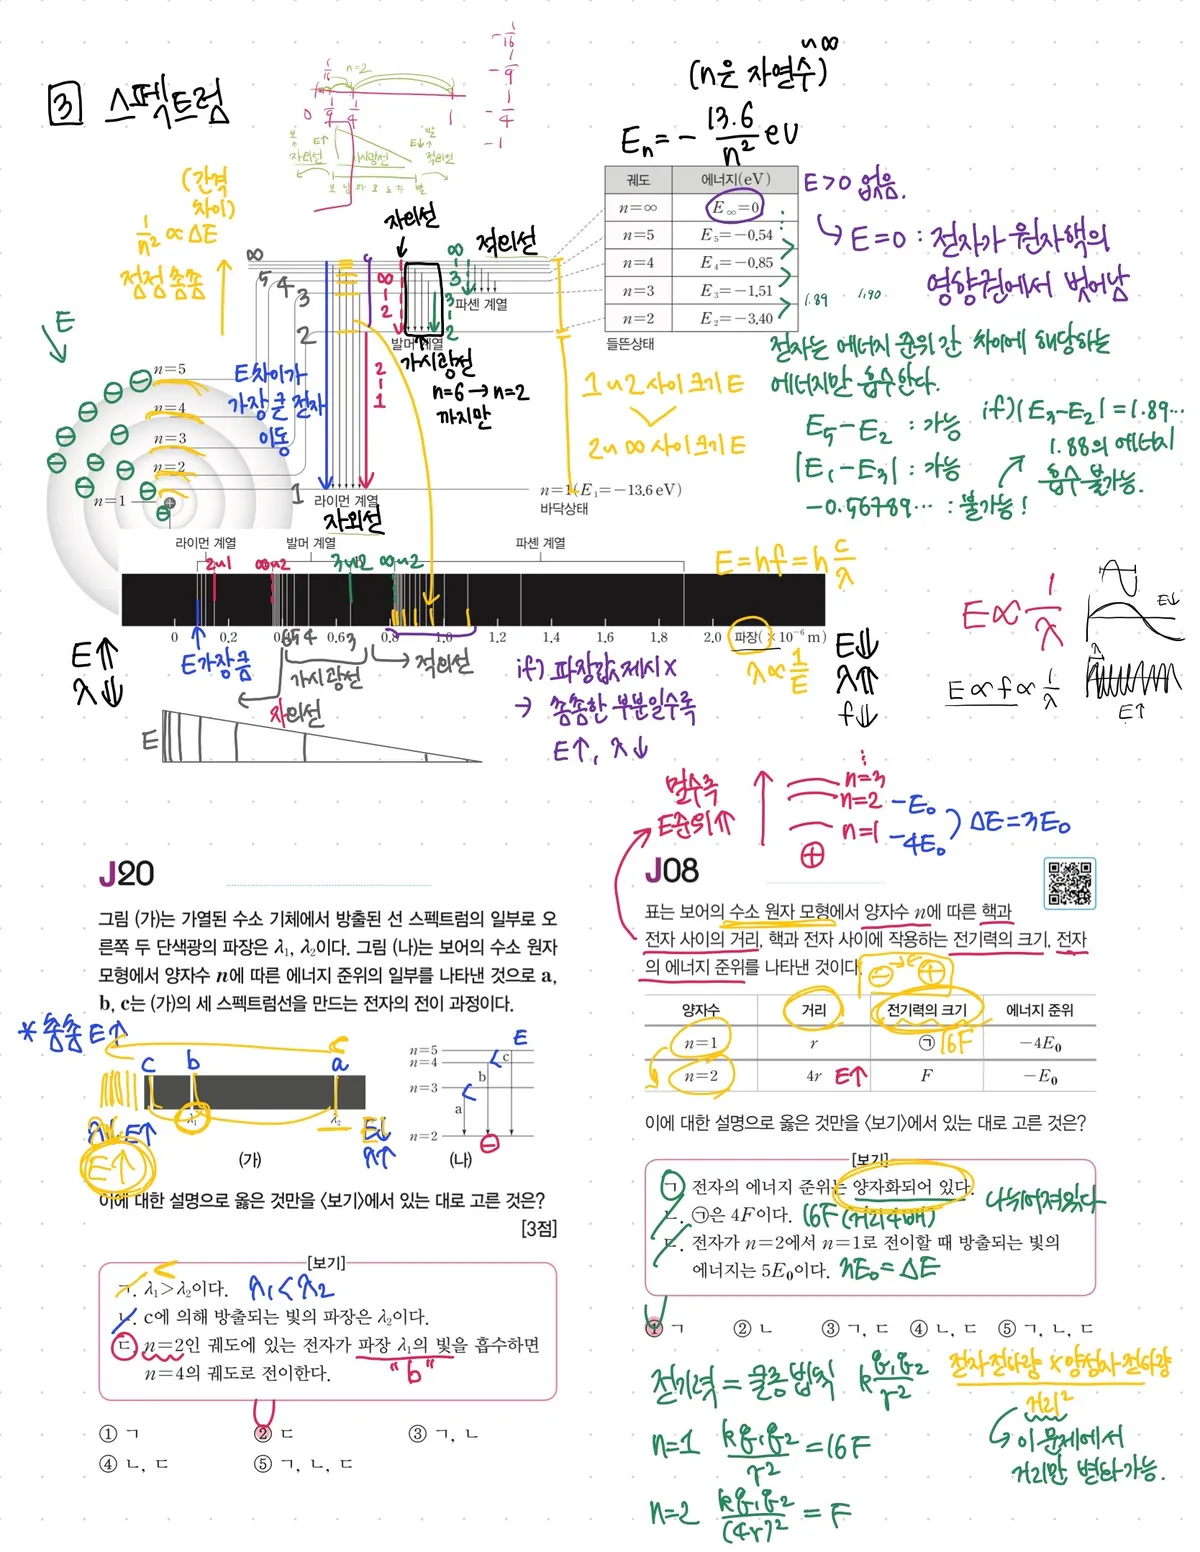 3 스펙트럼
n=2
0 1/9 1/4 1
-1/16
-1/9
-1/4
-1
자외선 E↑ 가시광선 E↓ 적외선
n∞
(n은 자연수)
En = - 13.6/n² eV
궤도 에너지(eV)
n=∞ E∞=0
n=5 E₅=-0.54
n=4 E₄=-0.85
n=3 E₃=-1.51
n=2 E₂=-3.40
들뜬상태
1.89 1.90
E>0 없음.
↳ E=0 : 전자가 원자핵의
영향권에서 벗어남
전자는 에너지 준위 간 차이에 해당하는
에너지만 흡수한다.
E₅-E₂ : 가능
|E₁-E₃| : 가능
-0.56789… : 불가능!
if) |E₃-E₂|=1.89…
1.88의 에너지
흡수 불가능.
(간격
차이)
1/n² ∝ ΔE
점점 촘촘
∞
5 4 3
2
1
자외선
적외선
∞-2
∞-3
3-2
2-1
파셴 계열
발머 계열
가시광선
n=6→n=2
까지만
E차이가
가장 큰 전자
이동
라이먼 계열
자외선
1~2 사이 크기 E
2~∞ 사이 크기 E
n=1(E₁=-13.6 eV)
바닥상태
E
n=5
n=4
n=3
n=2
n=1
라이먼 계열 발머 계열 파셴 계열
2~1 ∞~2 3~2 ∞~2
0 0.2 0.4 0.6 0.8 1.0 1.2 1.4 1.6 1.8 2.0 파장(×10⁻⁶ m)
E=hf=h c/λ
λ∝1/E
E↑
λ↓
E가장큼
6 5 4 3
가시광선
→ 적외선
자외선
E
if) 파장값 제시 X
→ 촘촘한 부분일수록
E↑, λ↓
E↓
λ↑
f↓
E∝1/λ
E∝f∝1/λ
E↓
λ
E↑
멀수록
E준위↑
n=3
n=2 -E₀
n=1 -4E₀
ΔE=3E₀
J20
그림 (가)는 가열된 수소 기체에서 방출된 선 스펙트럼의 일부로 오
른쪽 두 단색광의 파장은 λ₁, λ₂이다. 그림 (나)는 보어의 수소 원자
모형에서 양자수 n에 따른 에너지 준위의 일부를 나타낸 것으로 a,
b, c는 (가)의 세 스펙트럼선을 만드는 전자의 전이 과정이다.
* 촘촘 E↑
c b a
λ₁ λ₂
λ↓ E↑
E↑
E↓
λ↑
(가)
E
n=5
n=4
n=3
n=2
a b c
(나)
이에 대한 설명으로 옳은 것만을 <보기>에서 있는 대로 고른 것은?
[3점]
[보기]
ㄱ. λ₁>λ₂이다. λ₁<λ₂
ㄴ. c에 의해 방출되는 빛의 파장은 λ₂이다.
ㄷ. n=2인 궤도에 있는 전자가 파장 λ₁의 빛을 흡수하면
n=4의 궤도로 전이한다. "b"
① ㄱ ② ㄷ ③ ㄱ, ㄴ
④ ㄴ, ㄷ ⑤ ㄱ, ㄴ, ㄷ
J08
표는 보어의 수소 원자 모형에서 양자수 n에 따른 핵과
전자 사이의 거리, 핵과 전자 사이에 작용하는 전기력의 크기, 전자
의 에너지 준위를 나타낸 것이다.
양자수 거리 전기력의 크기 에너지 준위
n=1 r ㉠ 16F -4E₀
n=2 4r E↑ F -E₀
이에 대한 설명으로 옳은 것만을 <보기>에서 있는 대로 고른 것은?
[보기]
ㄱ. 전자의 에너지 준위는 양자화되어 있다. 나뉘어져있다
ㄴ. ㉠은 4F이다. 16F (거리 4배)
ㄷ. 전자가 n=2에서 n=1로 전이할 때 방출되는 빛의
에너지는 5E₀이다. 3E₀=ΔE
① ㄱ ② ㄴ ③ ㄱ, ㄷ ④ ㄴ, ㄷ ⑤ ㄱ, ㄴ, ㄷ
전기력 = 쿨롱 법칙 k q₁q₂/r²
전자 전하량 × 양성자 전하량
거리²
↳ 이 문제에서
거리만 변화 가능.
n=1 kq₁q₂/r² = 16F
n=2 kq₁q₂/(4r)² = F